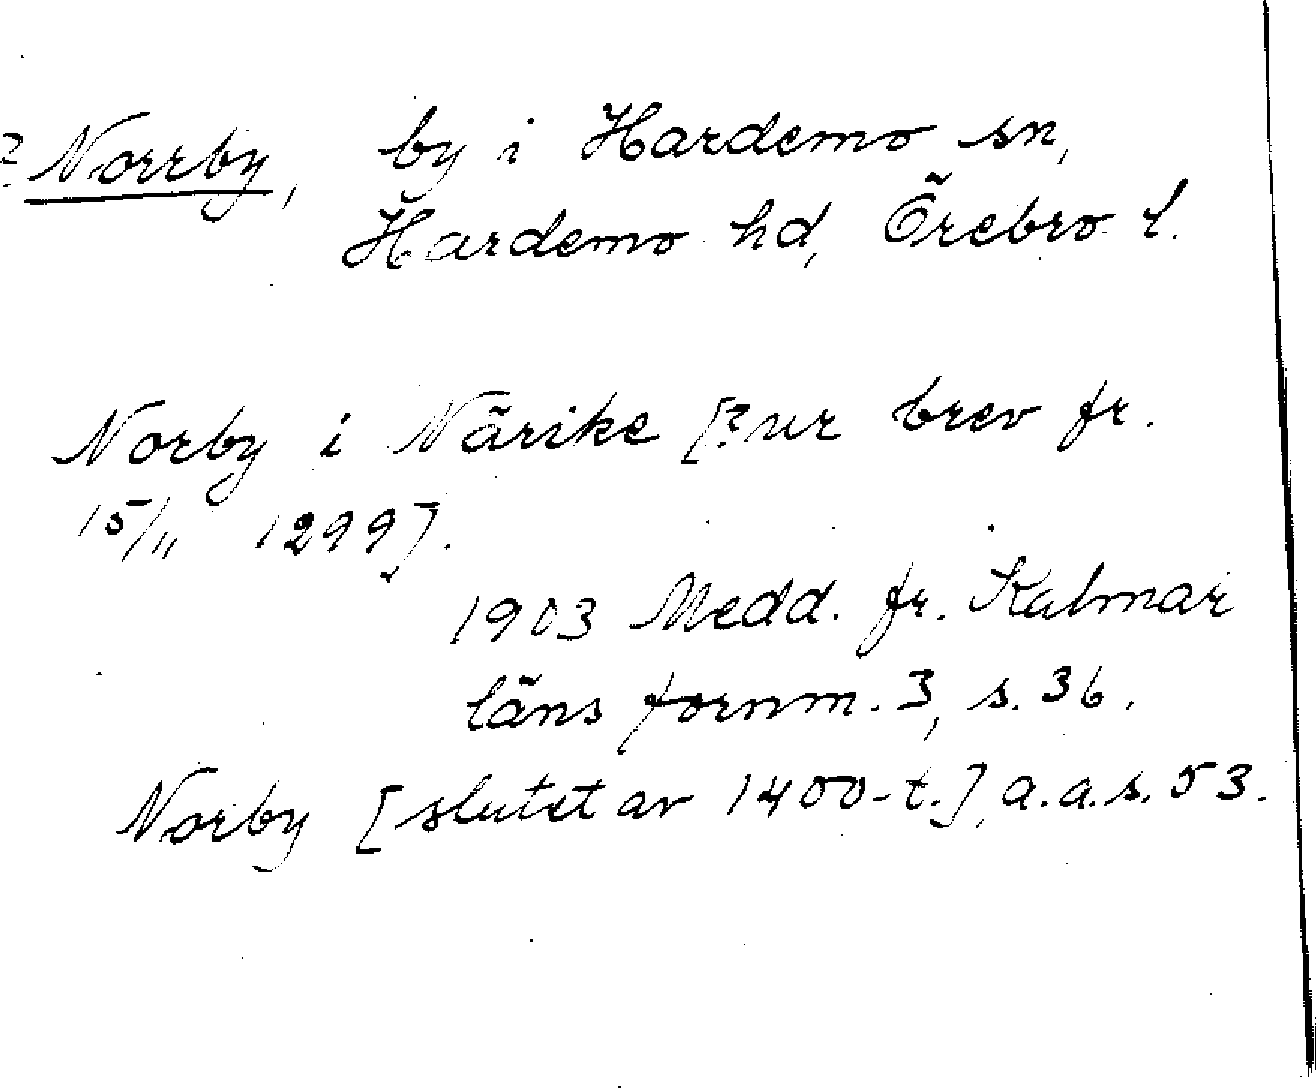 ? Norrby, by i Hardemo sn,
Hardemo hd, Örebro l.
Norby i Närike [? ur brev fr.
15/11 1299].
1903 Medd. fr. Kalmar
läns fornm. 3, s. 36.
Norby [slutet av 1400-t.], a.a.s. 53.